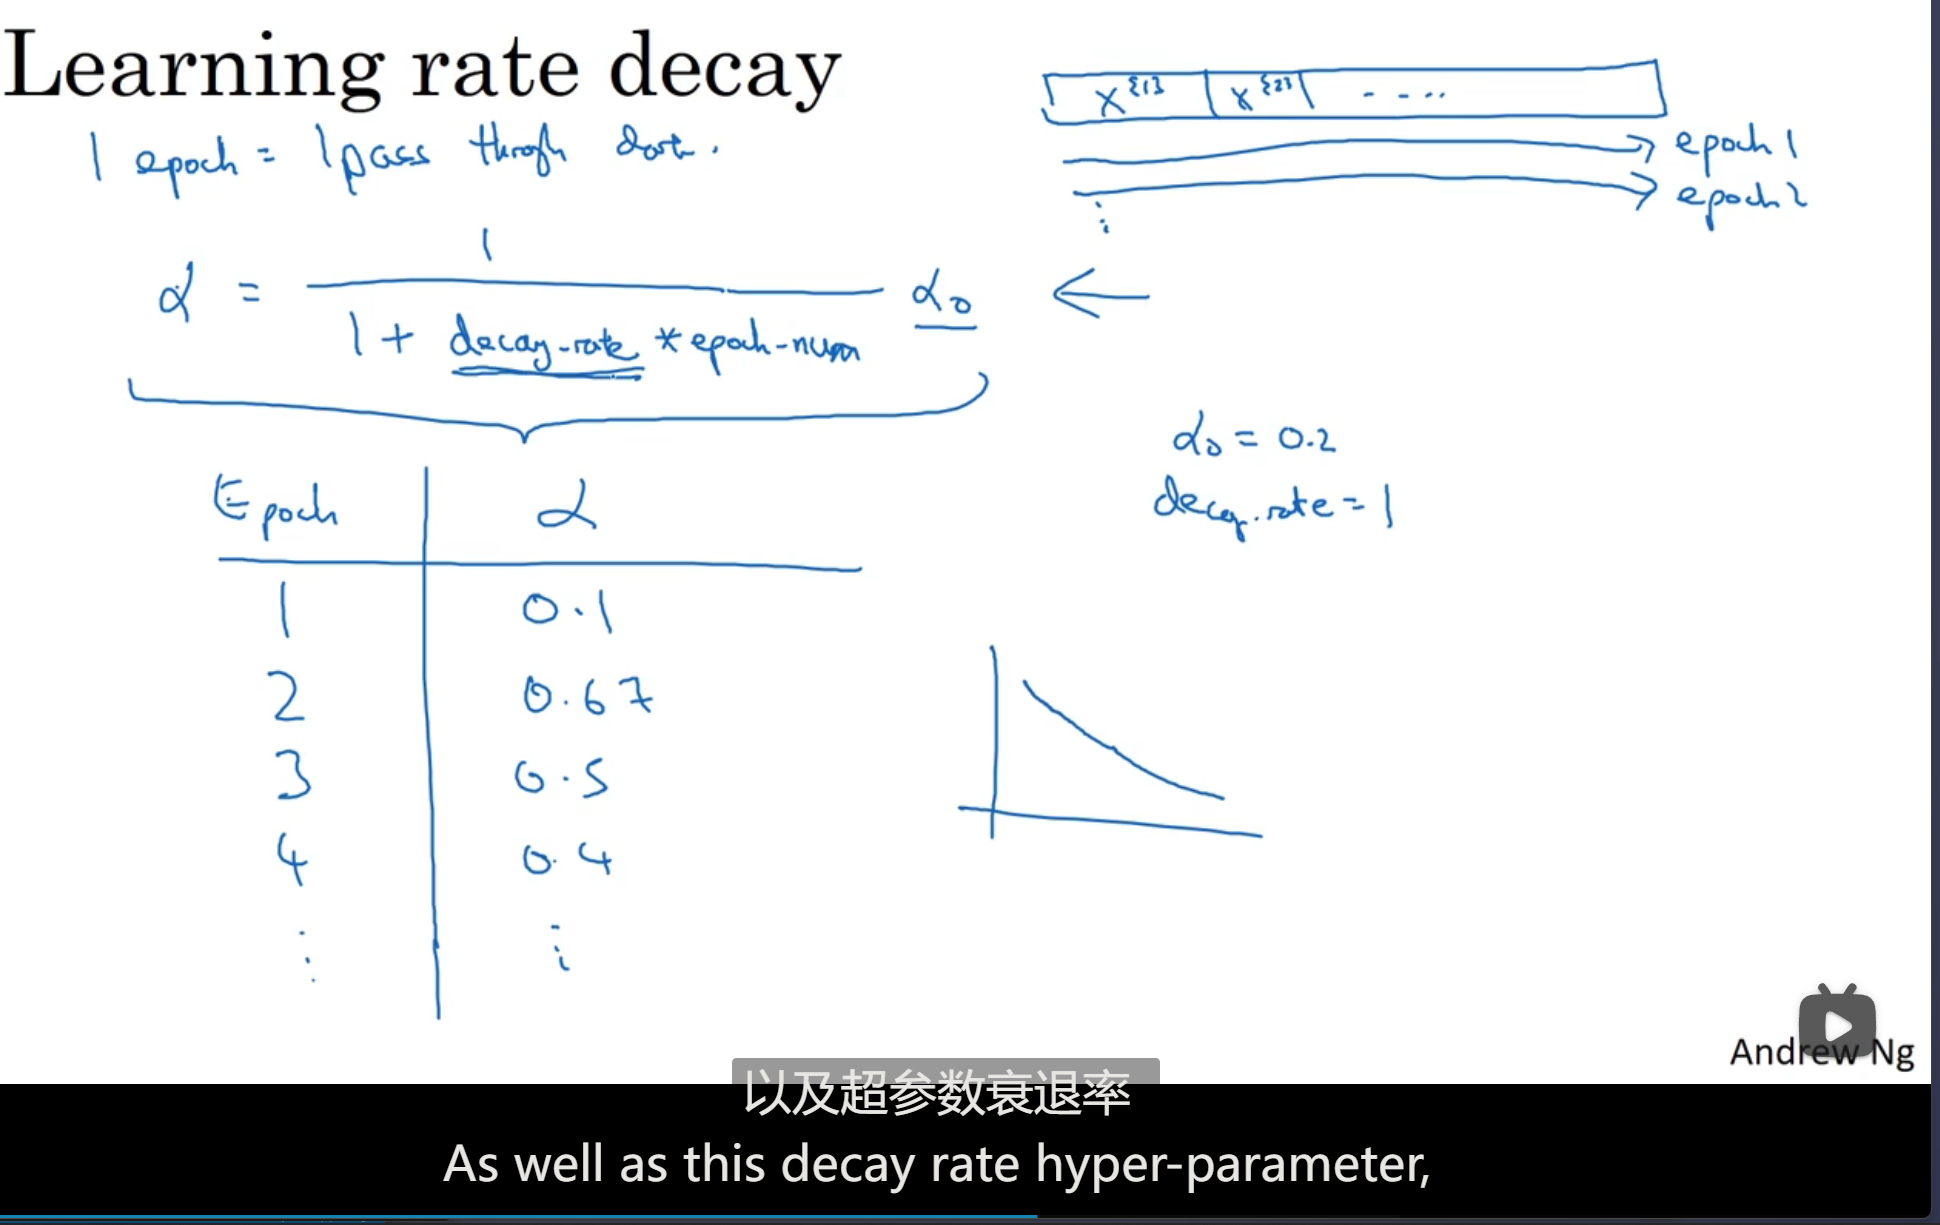 Learning rate decay
1 epoch = 1 pass through data.
X{1} X{2} ....
epoch 1
epoch 2
⋮
α = 1 / (1 + decay-rate * epoch-num) α₀ ←
α₀ = 0.2
decay-rate = 1
Epoch α
1 0.1
2 0.67
3 0.5
4 0.4
⋮ ⋮
Andrew Ng
以及超参数衰退率
As well as this decay rate hyper-parameter,